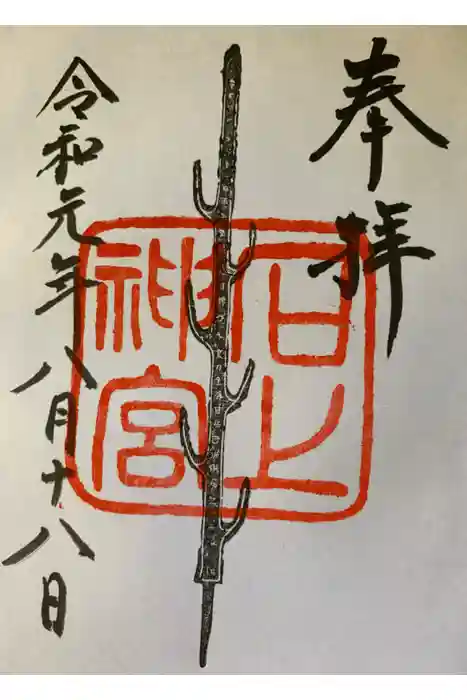 奉拝
石上
神宮
令和元年八月十八日